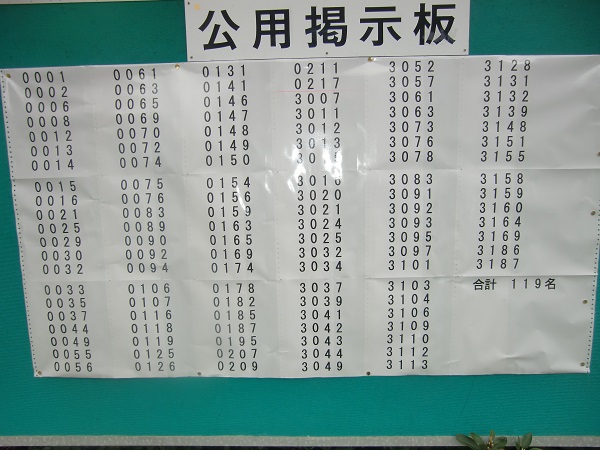 公用掲示板
0001
0002
0006
0008
0012
0013
0014
0015
0016
0021
0025
0029
0030
0032
0033
0035
0037
0044
0049
0055
0056
0061
0063
0065
0069
0070
0072
0074
0075
0076
0083
0089
0090
0092
0094
0106
0107
0116
0118
0119
0125
0126
0131
0141
0146
0147
0148
0149
0150
0154
0156
0159
0163
0165
0169
0174
0178
0182
0185
0187
0195
0207
0209
0211
0217
3007
3011
3012
3013
3016
3020
3021
3024
3025
3032
3034
3037
3039
3041
3042
3043
3044
3049
3052
3057
3061
3063
3073
3076
3078
3083
3091
3092
3093
3095
3097
3101
3103
3104
3106
3109
3110
3112
3113
3128
3131
3132
3139
3148
3151
3155
3158
3159
3160
3164
3169
3186
3187
合計 119名